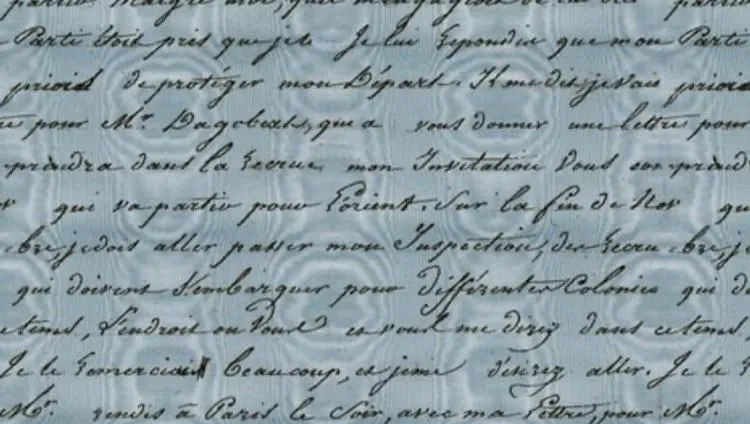 partir malgré moi, que m'engageois de lui partir
Parti étoit pris que je Je lui Repondis que mon Parti
priois de protéger mon Départ. Il me dit, je vais priois
pour Mr. Dagobert, que a vous donner une lettre pour
prendra dans la Recrue mon Invitation Vous comprendra
qui va partir pour L'orient. Sur la fin de Nov qui
-bre, je dois aller passer mon Inspection, des Recru -bre, je
qui doivent S'embarquer pour différentes Colonies qui
ce tems, L'endroit ou Vous et vous me direz dans ce tems,
Je le Remerciai beaucoup, et je me désirez aller. Je le
Mr. rendis à Paris le Soir, avec ma Lettre, pour Mr.